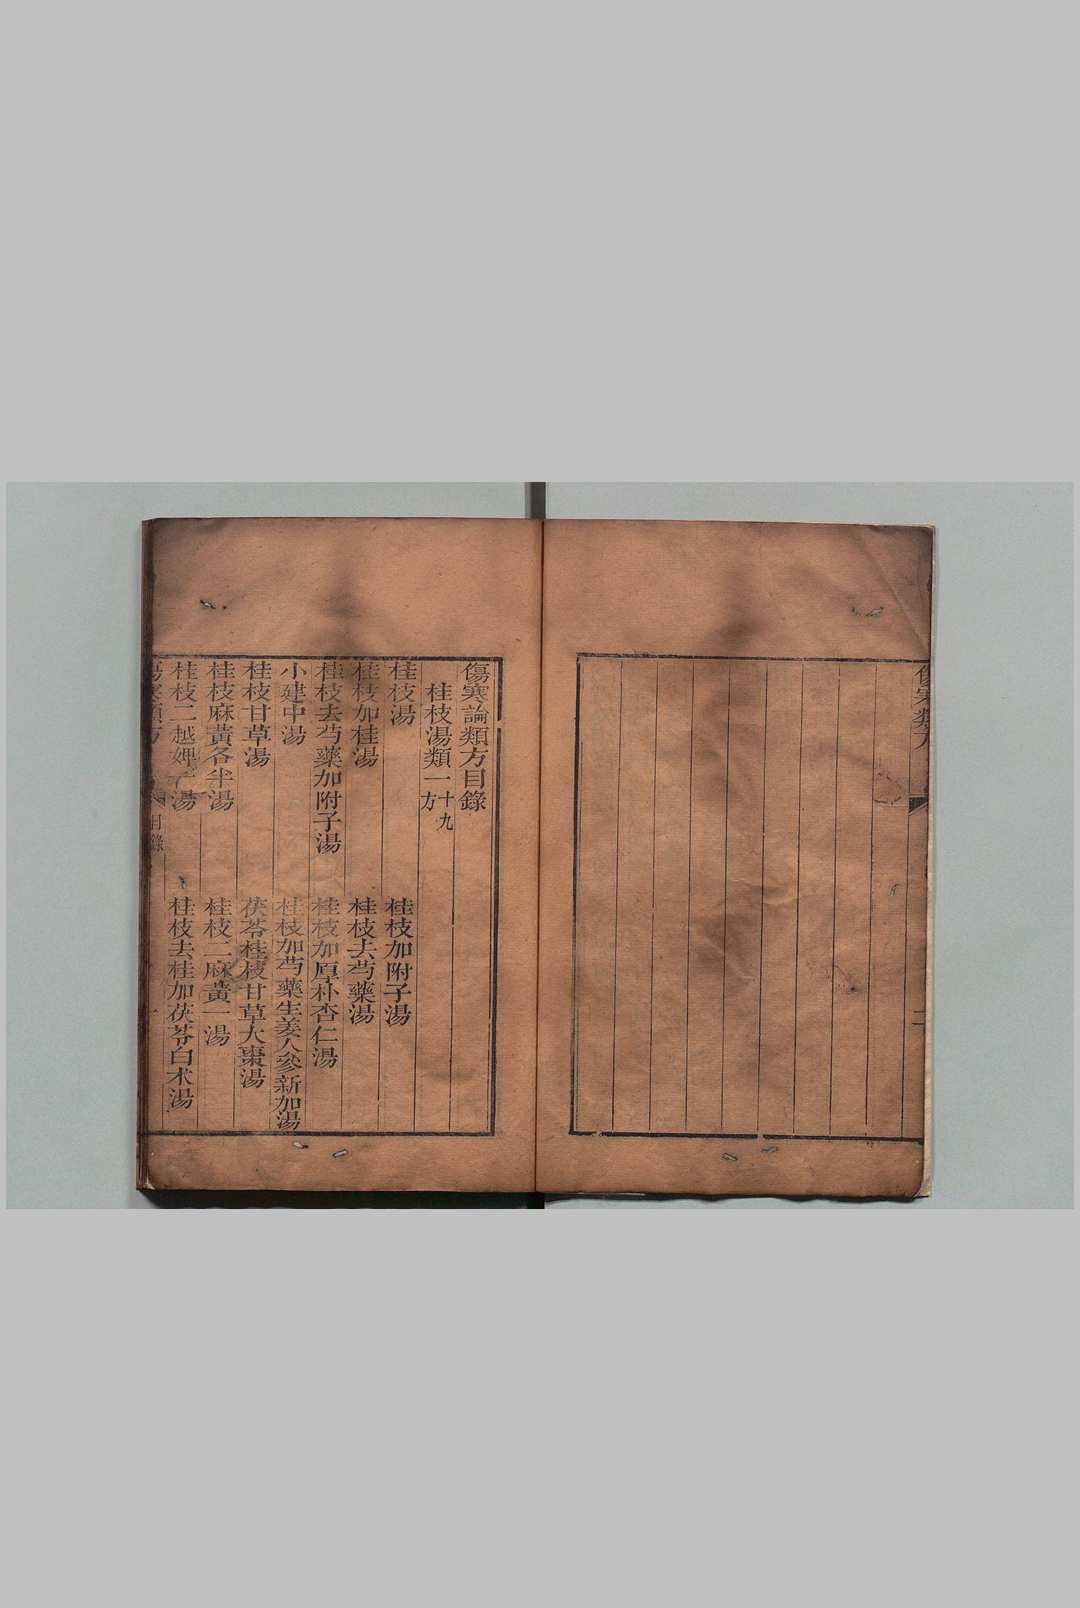 傷寒類方
二
傷寒論類方目錄
桂枝湯類一十九方
桂枝湯
桂枝加附子湯
桂枝加桂湯
桂枝去芍藥湯
桂枝去芍藥加附子湯
桂枝加厚朴杏仁湯
小建中湯
桂枝加芍藥生姜人參新加湯
桂枝甘草湯
茯苓桂枝甘草大棗湯
桂枝麻黃各半湯
桂枝二麻黃一湯
桂枝二越婢一湯
桂枝去桂加茯苓白朮湯
傷寒類方
目錄
一